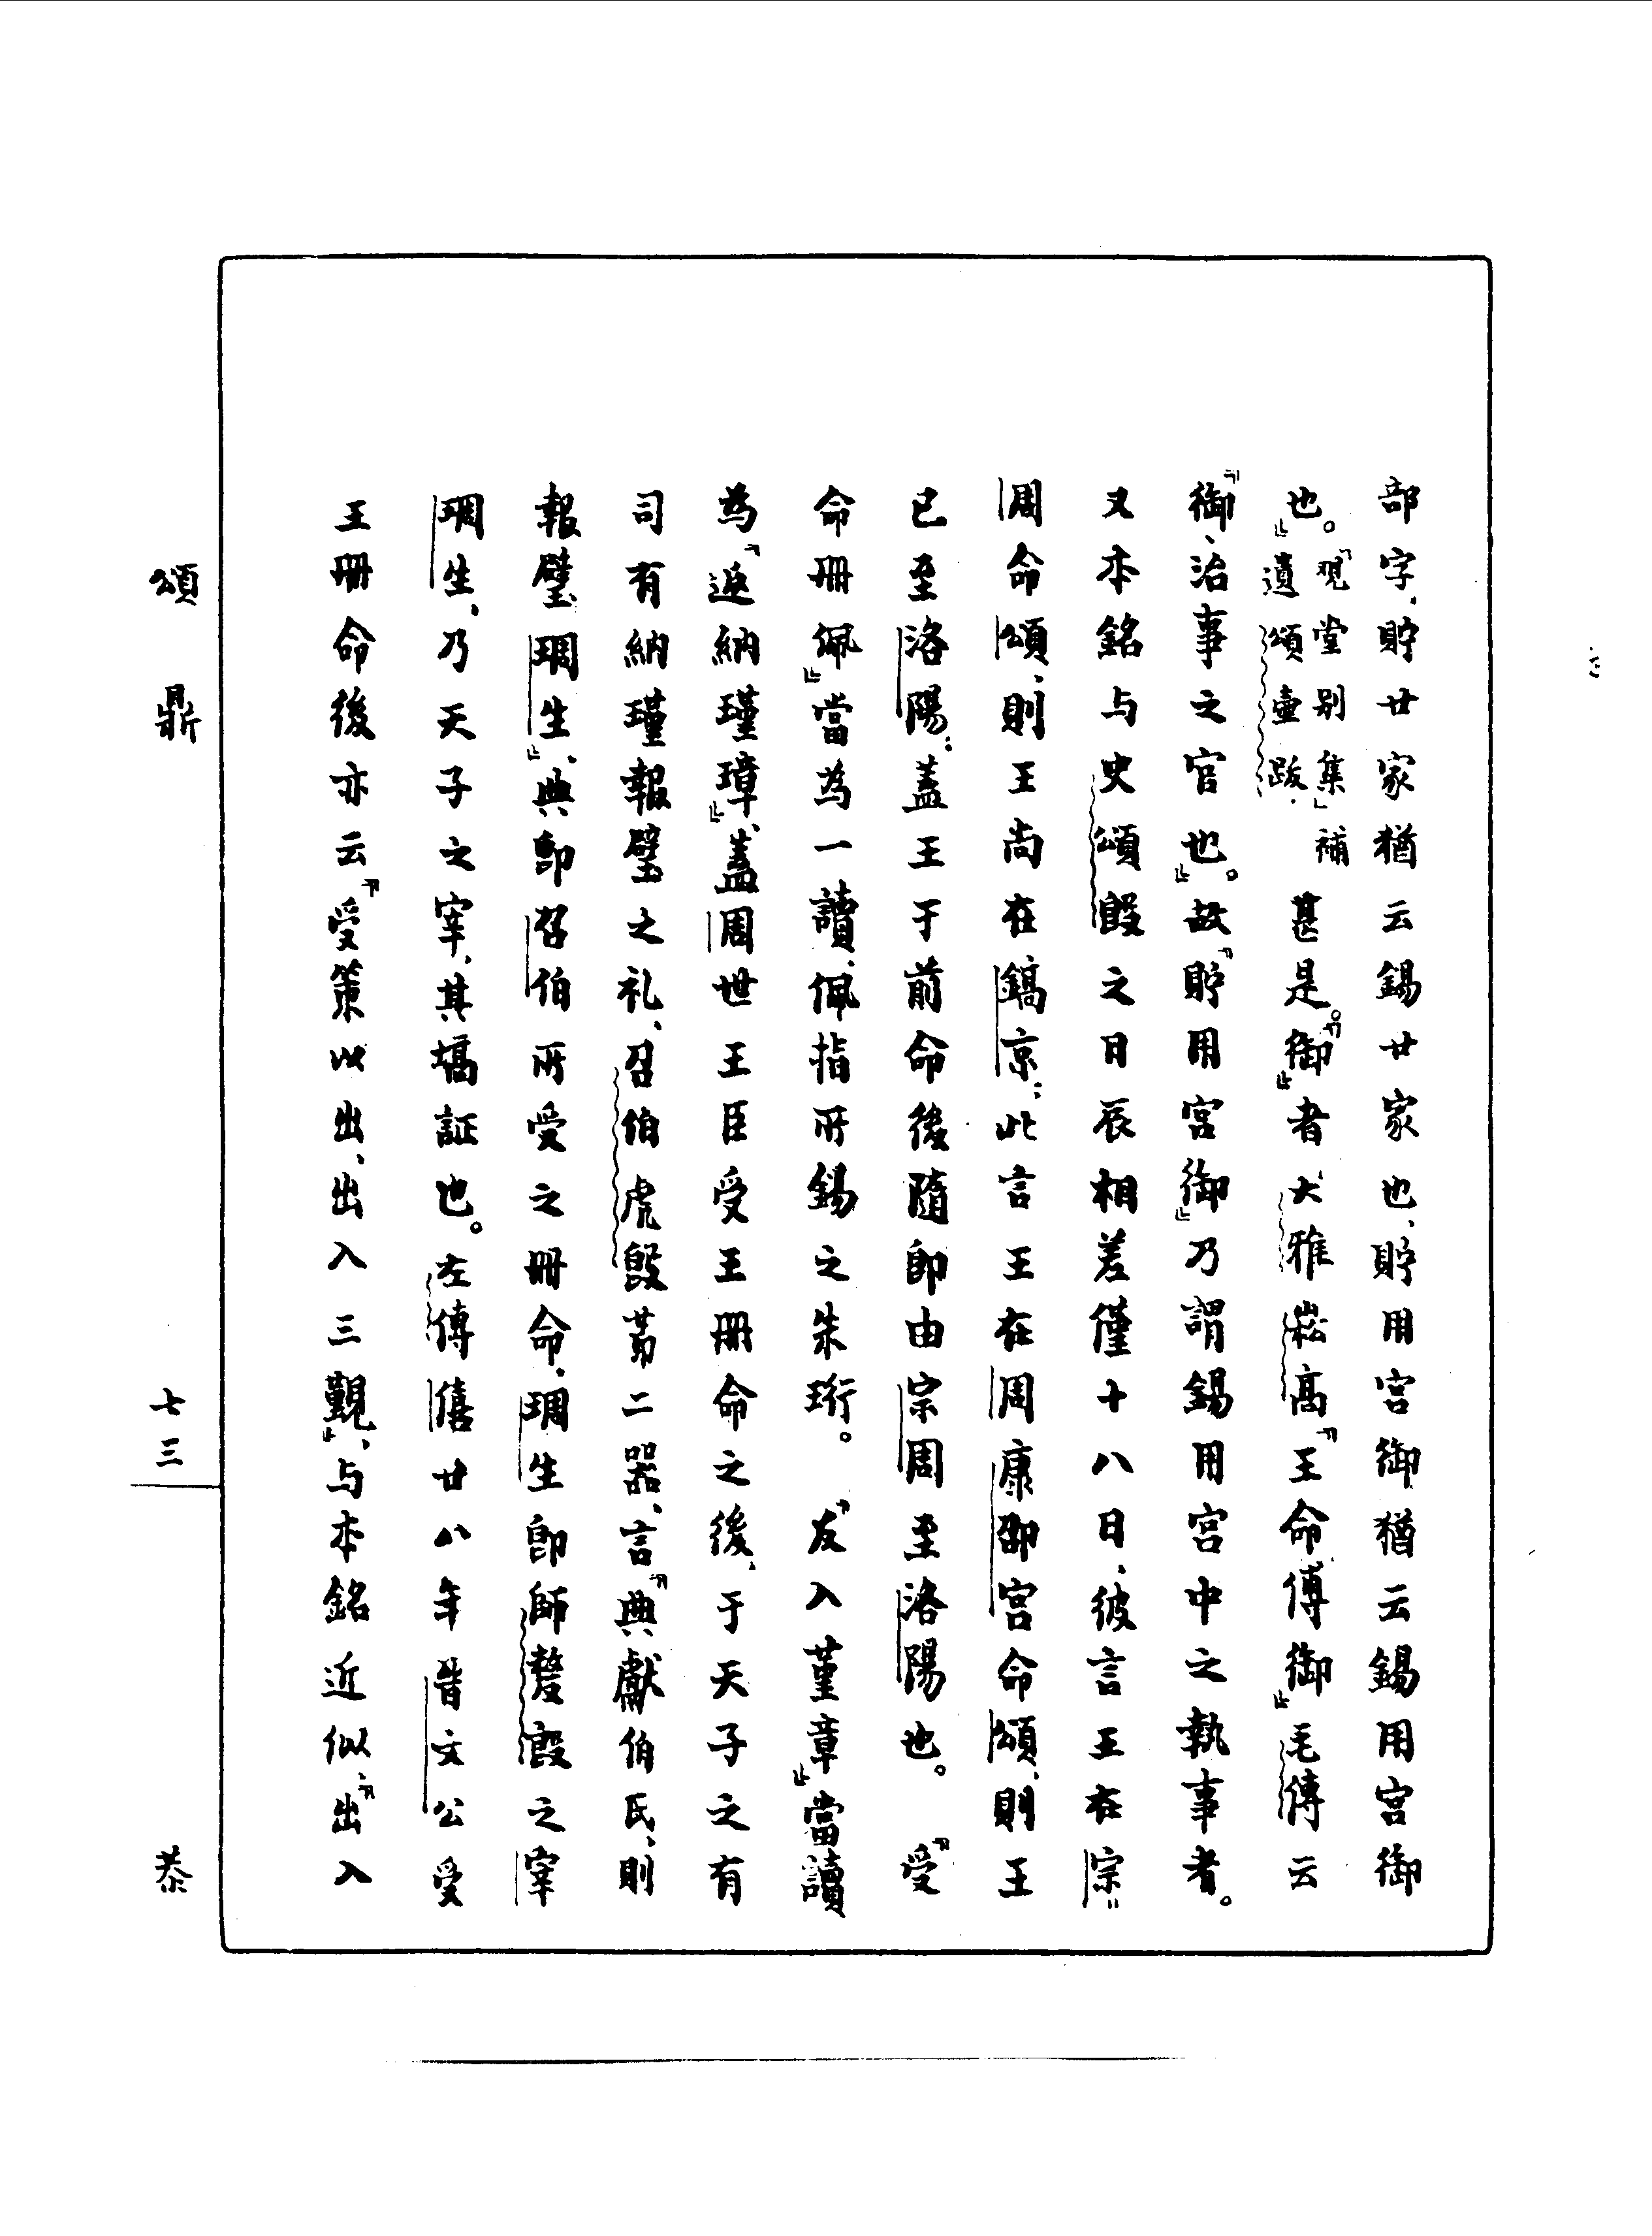 部字，貯廿家猶云錫廿家也，貯用宮御猶云錫用宮御
也。』『观堂别集』補遺頌壷跋. 甚是。『御』者大雅崧高『王命傅御』毛傳云
『御、治事之官也』。故『貯用宮御』乃謂錫用宮中之執事者。
又本銘与史頌𣪘之日辰相差僅十八日，彼言王在宗〃
周命頌，則王尚在鎬京；此言王在周康卲宮命頌，則王
已至洛陽；蓋王于前命後隨即由宗周至洛陽也。 『受
命册佩』當為一讀，佩指所錫之朱珩。 『反入堇章』當讀
為『返納瑾璋』，蓋周世王臣受王册命之後，于天子之有
司有納瑾報璧之礼，召伯虎𣪘苐二器，言『典獻伯氏，則
報璧琱生』，典即召伯所受之册命，琱生即師嫠𣪘之宰
琱生，乃天子之宰，其塙証也。左傳僖廿八年晋文公受
王册命後亦云『受策以出，出入三覲』，与本銘近似，『出入
頌鼎
七三